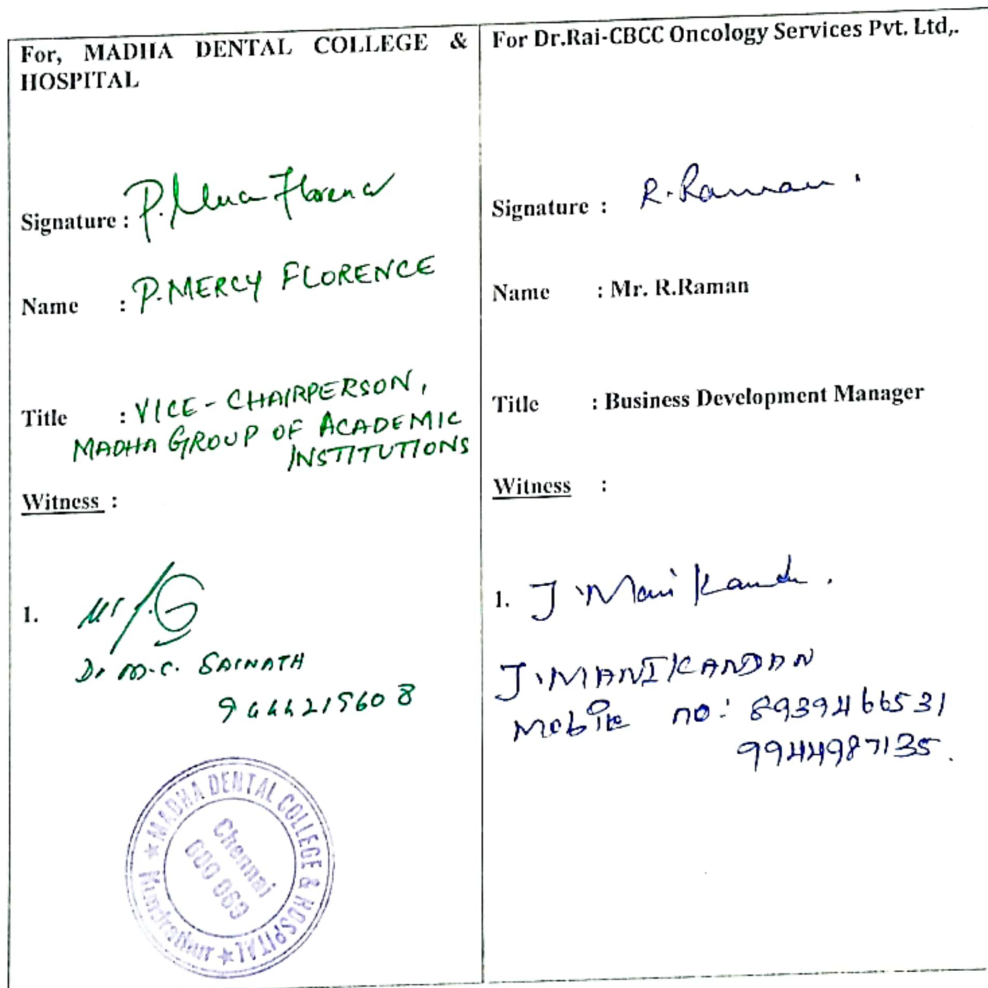 For, MADHA DENTAL COLLEGE &
HOSPITAL
Signature : P. Florence
Name : P. MERCY FLORENCE
Title : VICE - CHAIRPERSON,
MADHA GROUP OF ACADEMIC
INSTITUTIONS
Witness :
1.
Dr M.C. SAINATH
MADHA DENTAL COLLEGE & HOSPITAL
Chennai
600 069
Kundrathur
For Dr.Rai-CBCC Oncology Services Pvt. Ltd,.
Signature : R. Raman .
Name : Mr. R.Raman
Title : Business Development Manager
Witness :
1. J. Mani Kanda .
J. MANIKANDAN
Mobile no: 8939466531
9944987135.